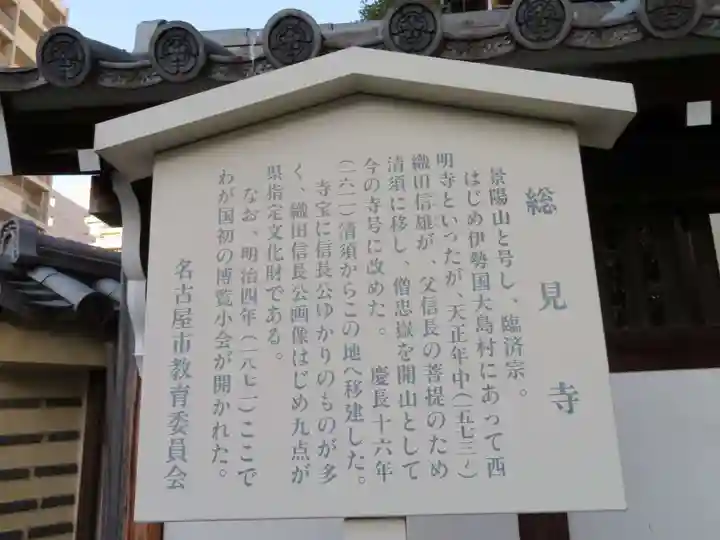 総見寺
景陽山と号し、臨済宗。
はじめ伊勢国大島村にあって西
明寺といったが、天正年中(一五七三〜)
織田信雄が、父信長の菩提のため
清須に移し、僧忠嶽を開山として
今の寺号に改めた。 慶長十六年
(一六一一)清須からこの地へ移建した。
寺宝に信長公ゆかりのものが多
く、織田信長公画像はじめ九点が
県指定文化財である。
なお、明治四年(一八七一)ここで
わが国初の博覧小会が開かれた。
名古屋市教育委員会